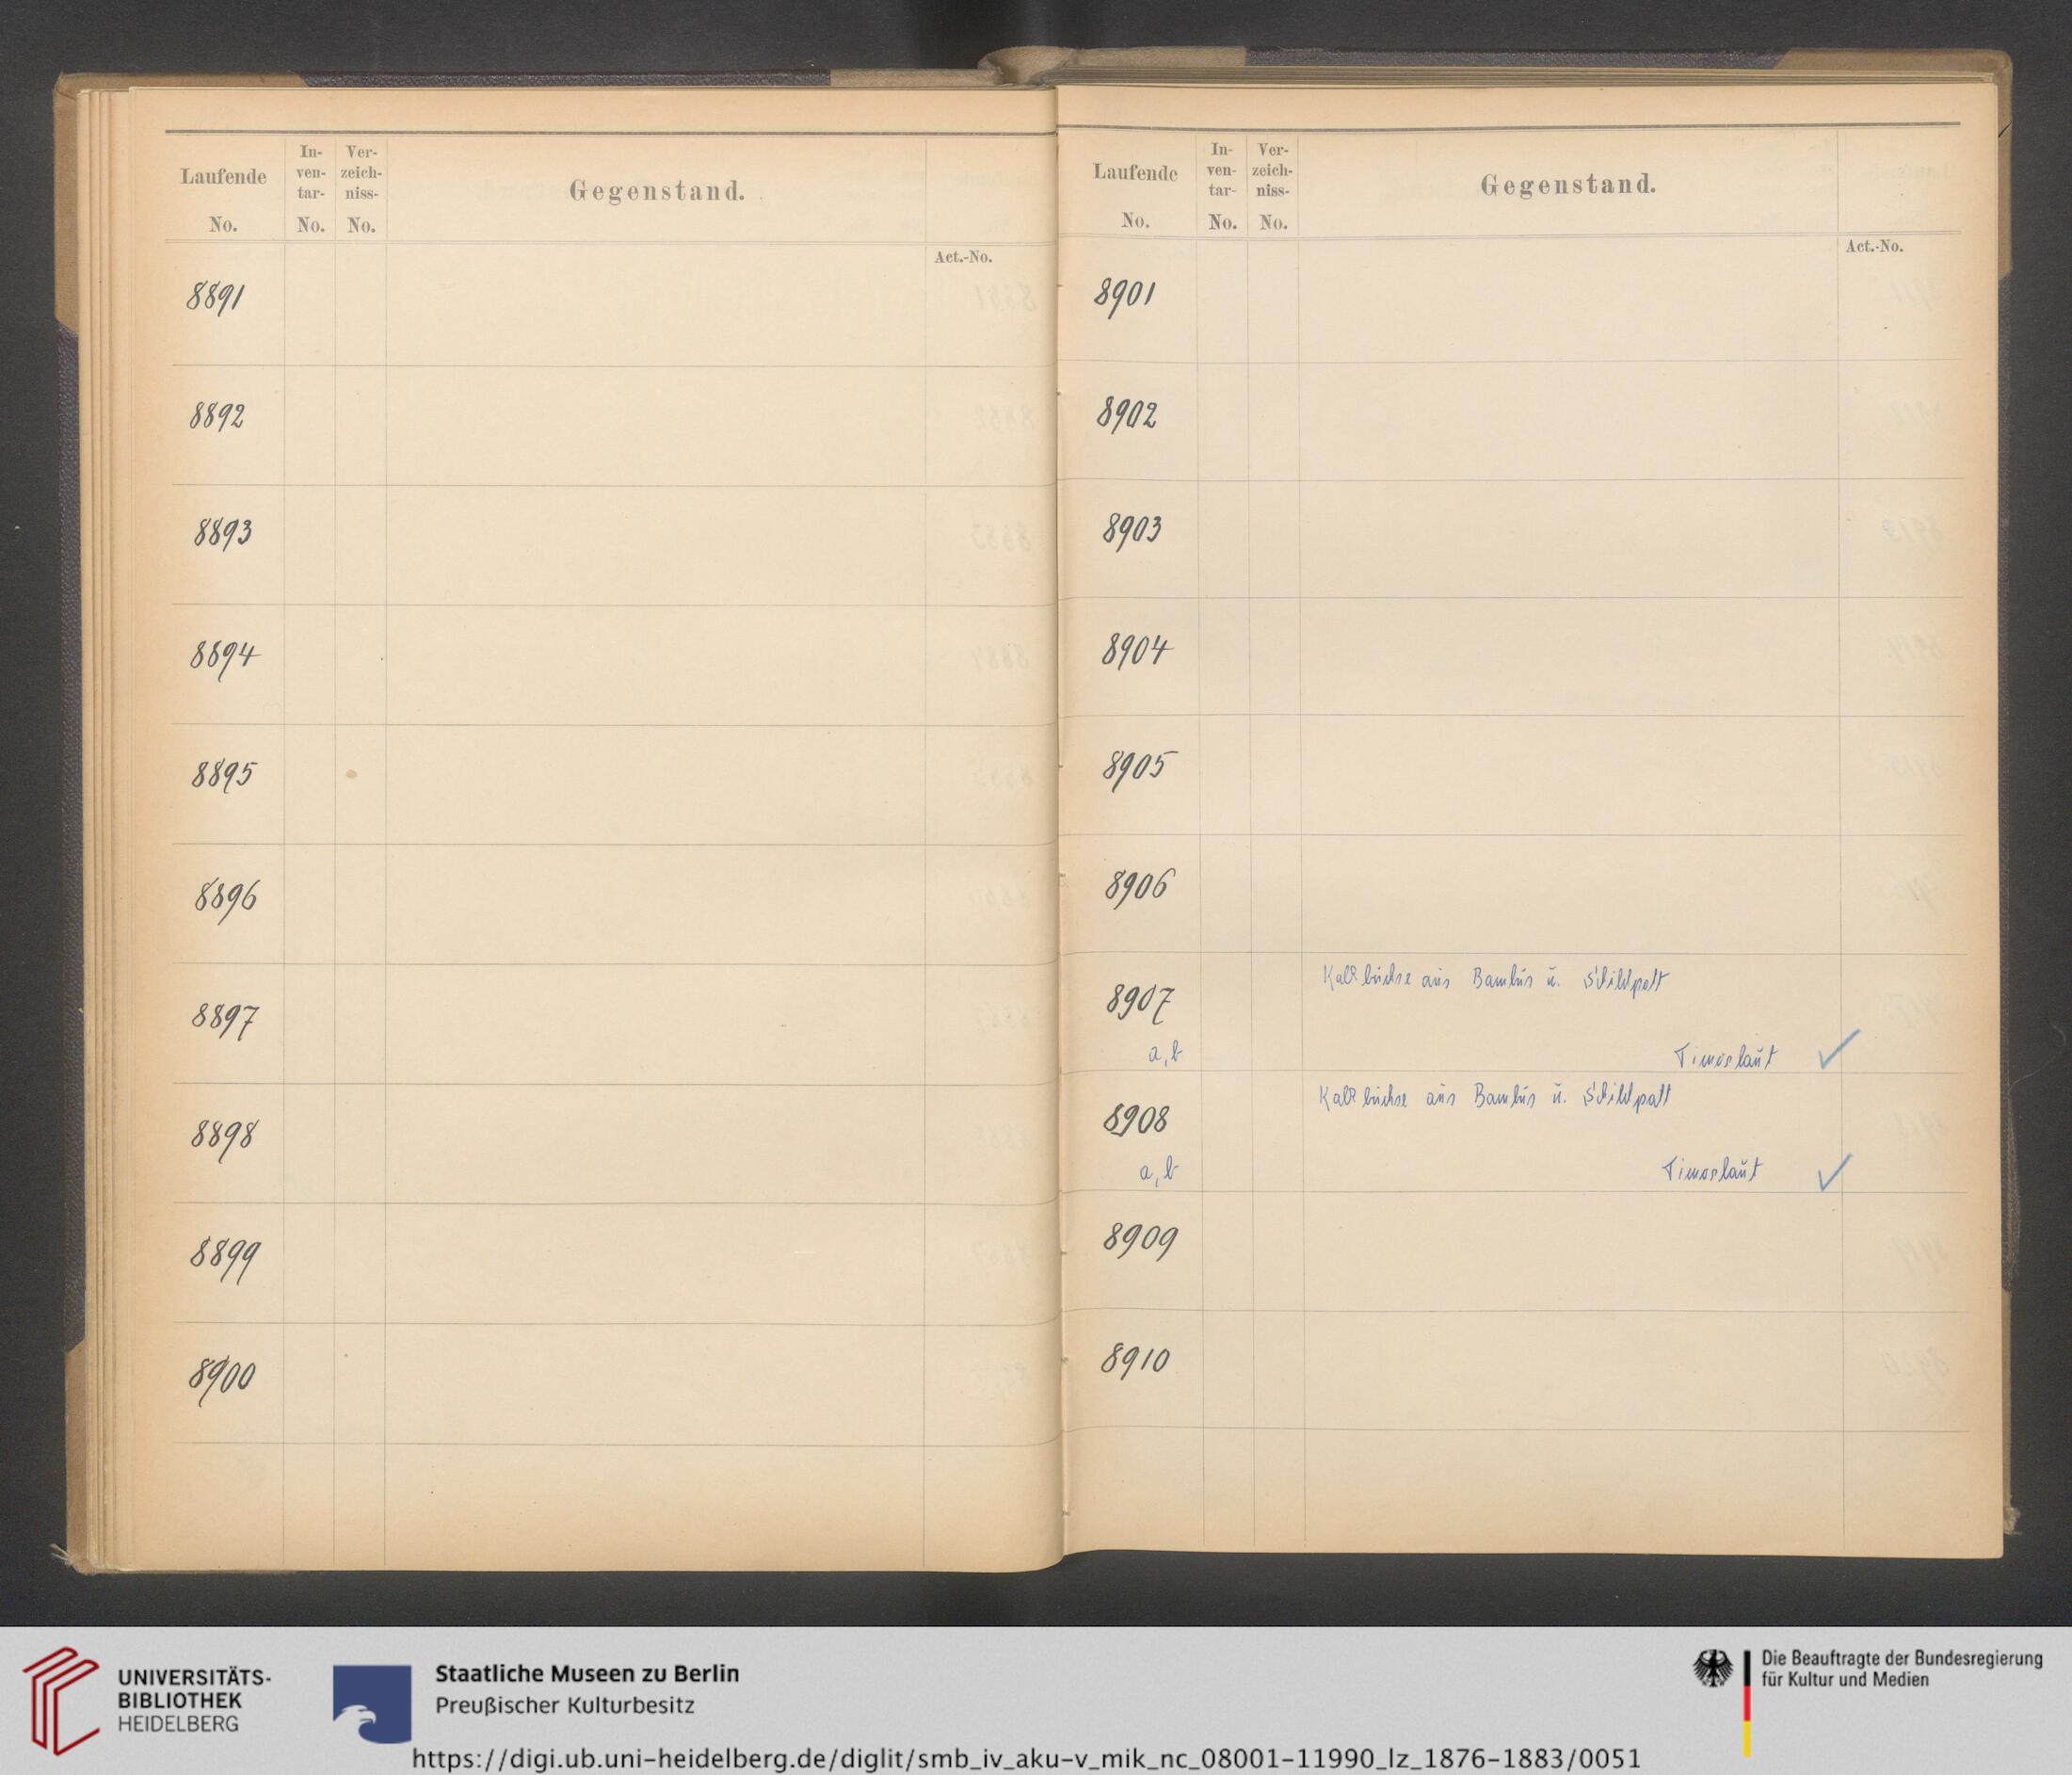 Laufende
No.
In-
ven-
tar-
No.
Ver-
zeich-
niss-
No.
Gegenstand.
Act.-No.
8891
8892
8893
8894
8895
8896
8897
8898
8899
8900
Laufende
No.
In-
ven-
tar-
No.
Ver-
zeich-
niss-
No.
Gegenstand.
Act.-No.
8901
8902
8903
8904
8905
8906
8907 Kalkbüchse aus Bambus u. Schildpatt
a, b Timorlaut ✓
8908 Kalkbüchse aus Bambus u. Schildpatt
a, b Timorlaut ✓
8909
8910
UNIVERSITÄTS-
BIBLIOTHEK
HEIDELBERG
Staatliche Museen zu Berlin
Preußischer Kulturbesitz
Die Beauftragte der Bundesregierung
für Kultur und Medien
https://digi.ub.uni-heidelberg.de/diglit/smb_iv_aku-v_mik_nc_08001-11990_lz_1876-1883/0051